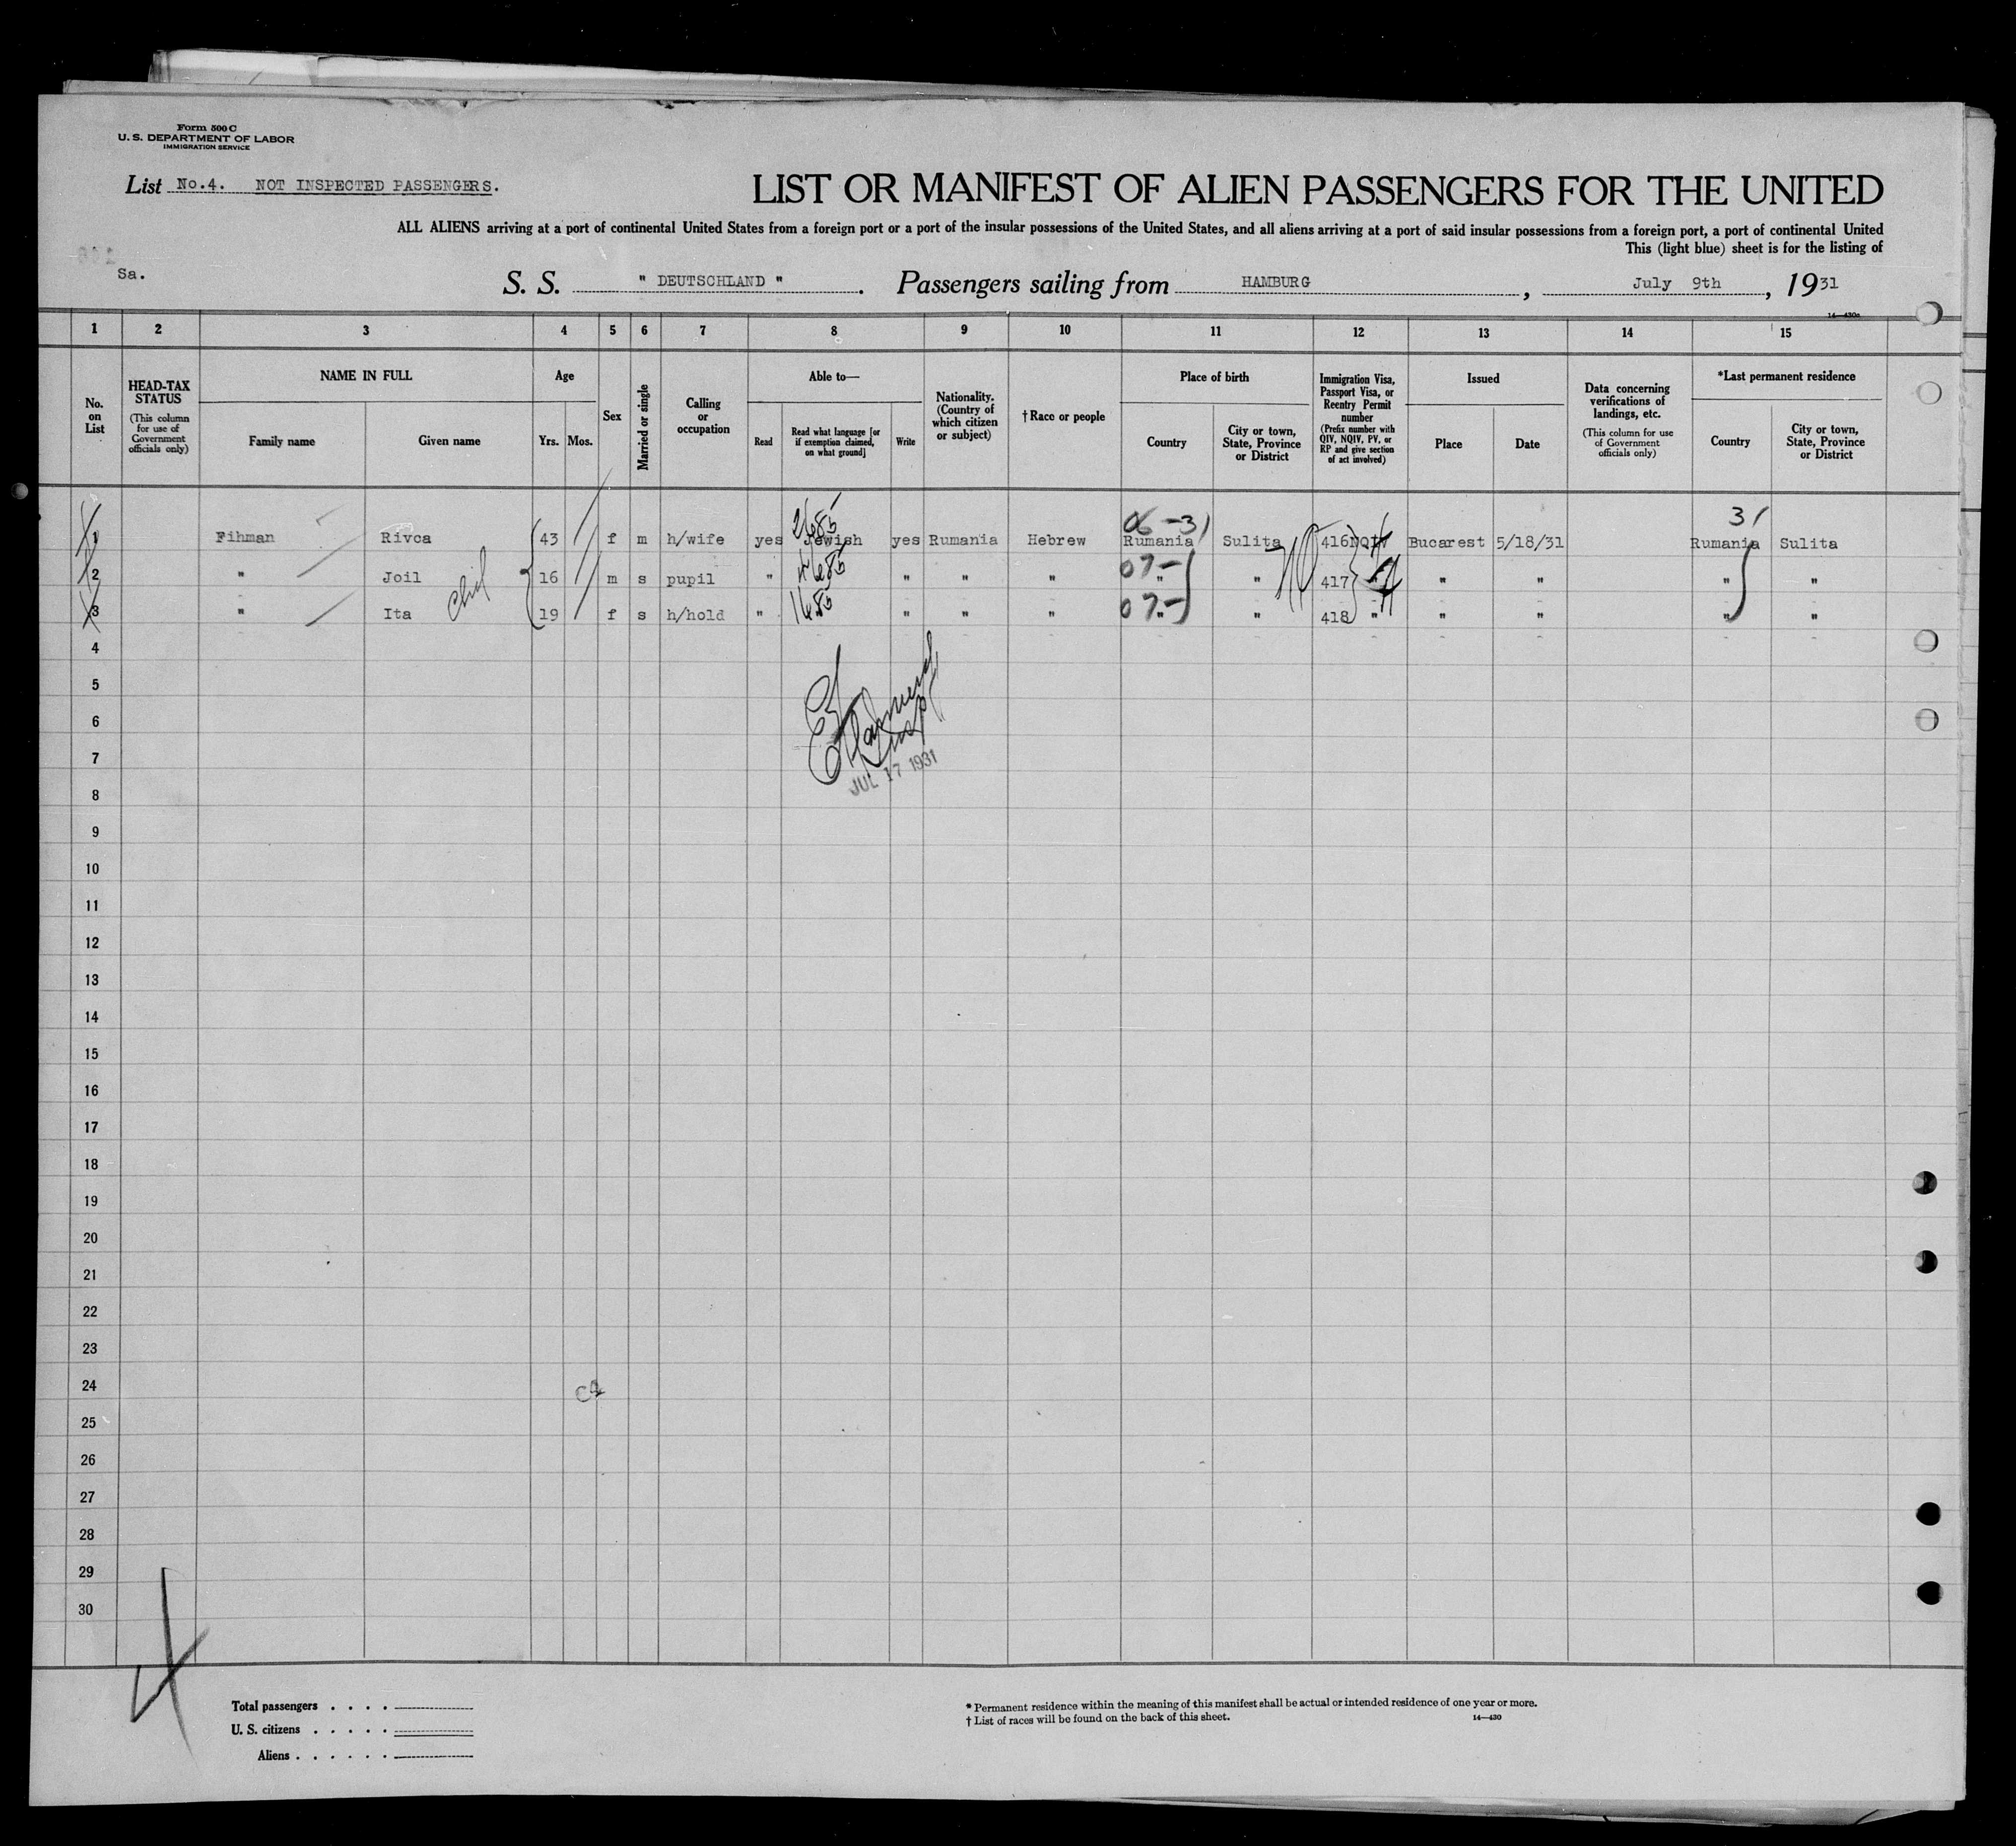 Form 500 C
U. S. DEPARTMENT OF LABOR
IMMIGRATION SERVICE
List No.4. NOT INSPECTED PASSENGERS.
LIST OR MANIFEST OF ALIEN PASSENGERS FOR THE UNITED
ALL ALIENS arriving at a port of continental United States from a foreign port or a port of the insular possessions of the United States, and all aliens arriving at a port of said insular possessions from a foreign port, a port of continental United
This (light blue) sheet is for the listing of
Sa.
S. S. " DEUTSCHLAND ". Passengers sailing from HAMBURG, July 9th, 1931
14—430a
1 2 3 4 5 6 7 8 9 10 11 12 13 14 15
No. on List
HEAD-TAX STATUS (This column for use of Government officials only)
NAME IN FULL
Family name Given name
Age
Yrs. Mos.
Sex
Married or single
Calling or occupation
Able to—
Read
Read what language [or if exemption claimed, on what ground]
Write
Nationality. (Country of which citizen or subject)
†Race or people
Place of birth
Country
City or town, State, Province or District
Immigration Visa, Passport Visa, or Reentry Permit number (Prefix number with QIV, NQIV, PV, or RP and give section of act involved)
Issued
Place Date
Data concerning verifications of landings, etc. (This column for use of Government officials only)
*Last permanent residence
Country
City or town, State, Province or District
06-31 31
1 Fihman Rivca 43 f m h/wife yes Jewish yes Rumania Hebrew Rumania Sulita 416 NQIV Bucarest 5/18/31 Rumania Sulita
2 " Joil 16 m s pupil " " " " 07- " " 417 " " " " "
3 " Ita 19 f s h/hold " " " " 07- " " 418 " " " " "
4
5
6
7
JUL 17 1931
8
9
10
11
12
13
14
15
16
17
18
19
20
21
22
23
24
25
26
27
28
29
30
Total passengers . . . .
U. S. citizens . . . . .
Aliens . . . . . .
* Permanent residence within the meaning of this manifest shall be actual or intended residence of one year or more.
† List of races will be found on the back of this sheet. 14—430